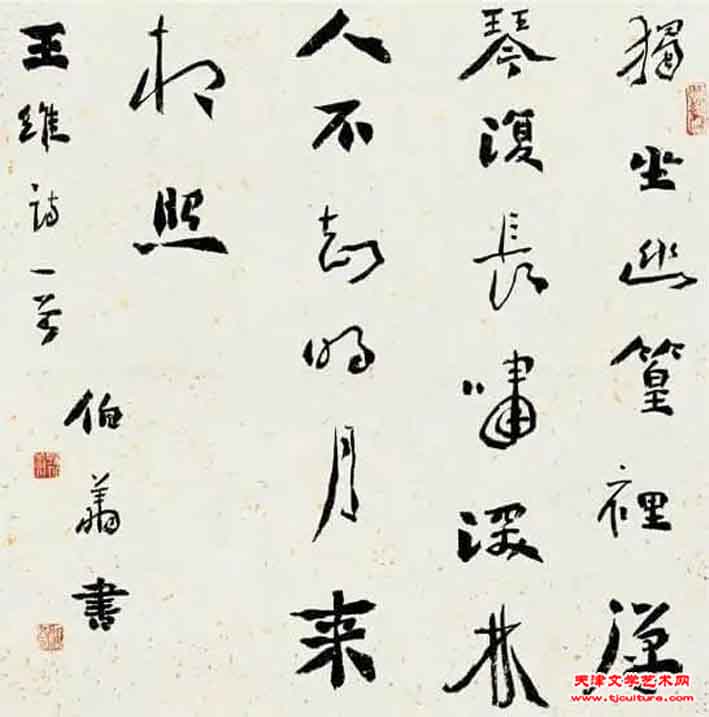 獨坐幽篁裡弹
琴復長嘯深林
人不知明月来
相照
王維詩一首
伯翔書
天津文学艺术网
www.tjculture.com